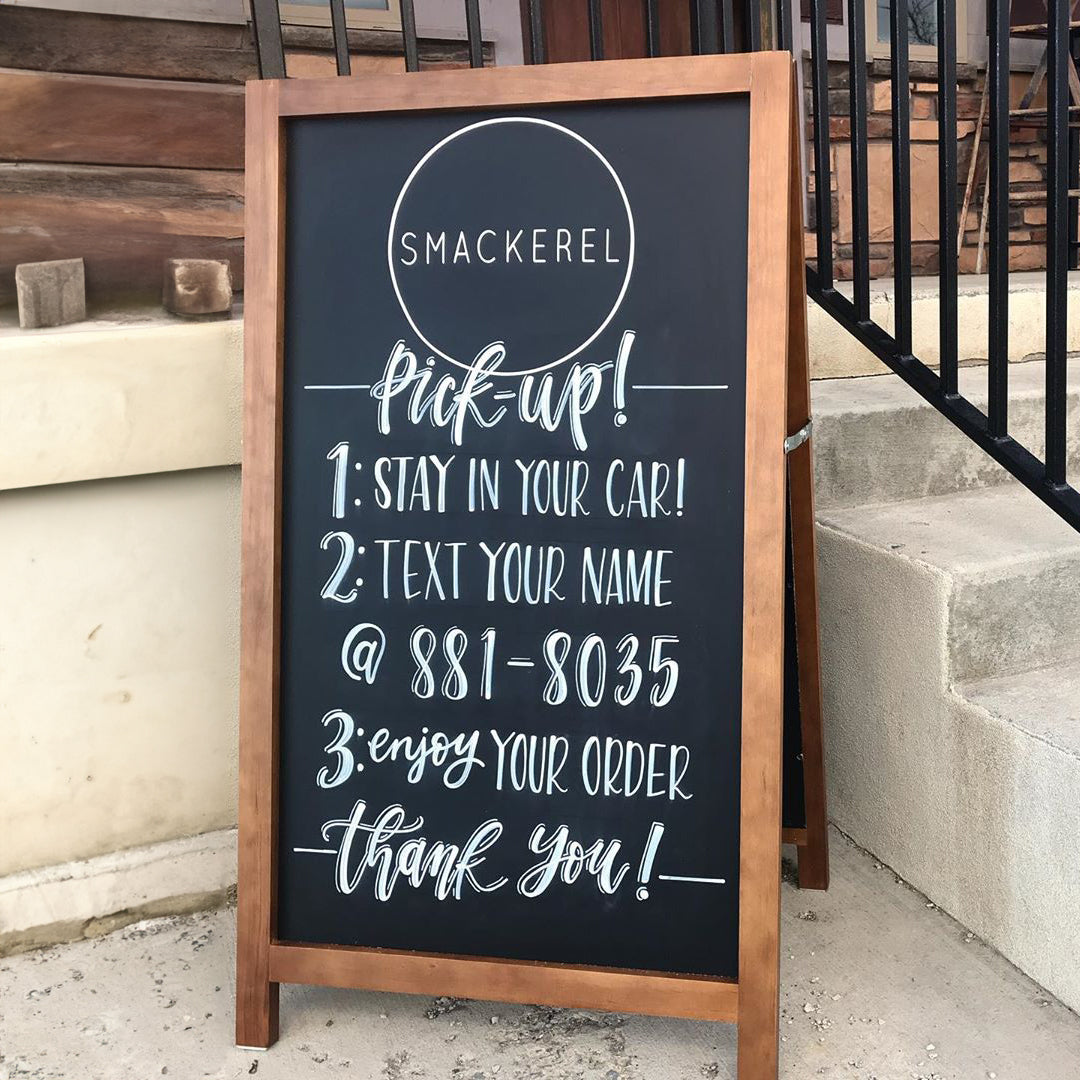 SMACKEREL
Pick-up!
1: STAY IN YOUR CAR!
2: TEXT YOUR NAME
@ 881-8035
3: enjoy YOUR ORDER
thank you!